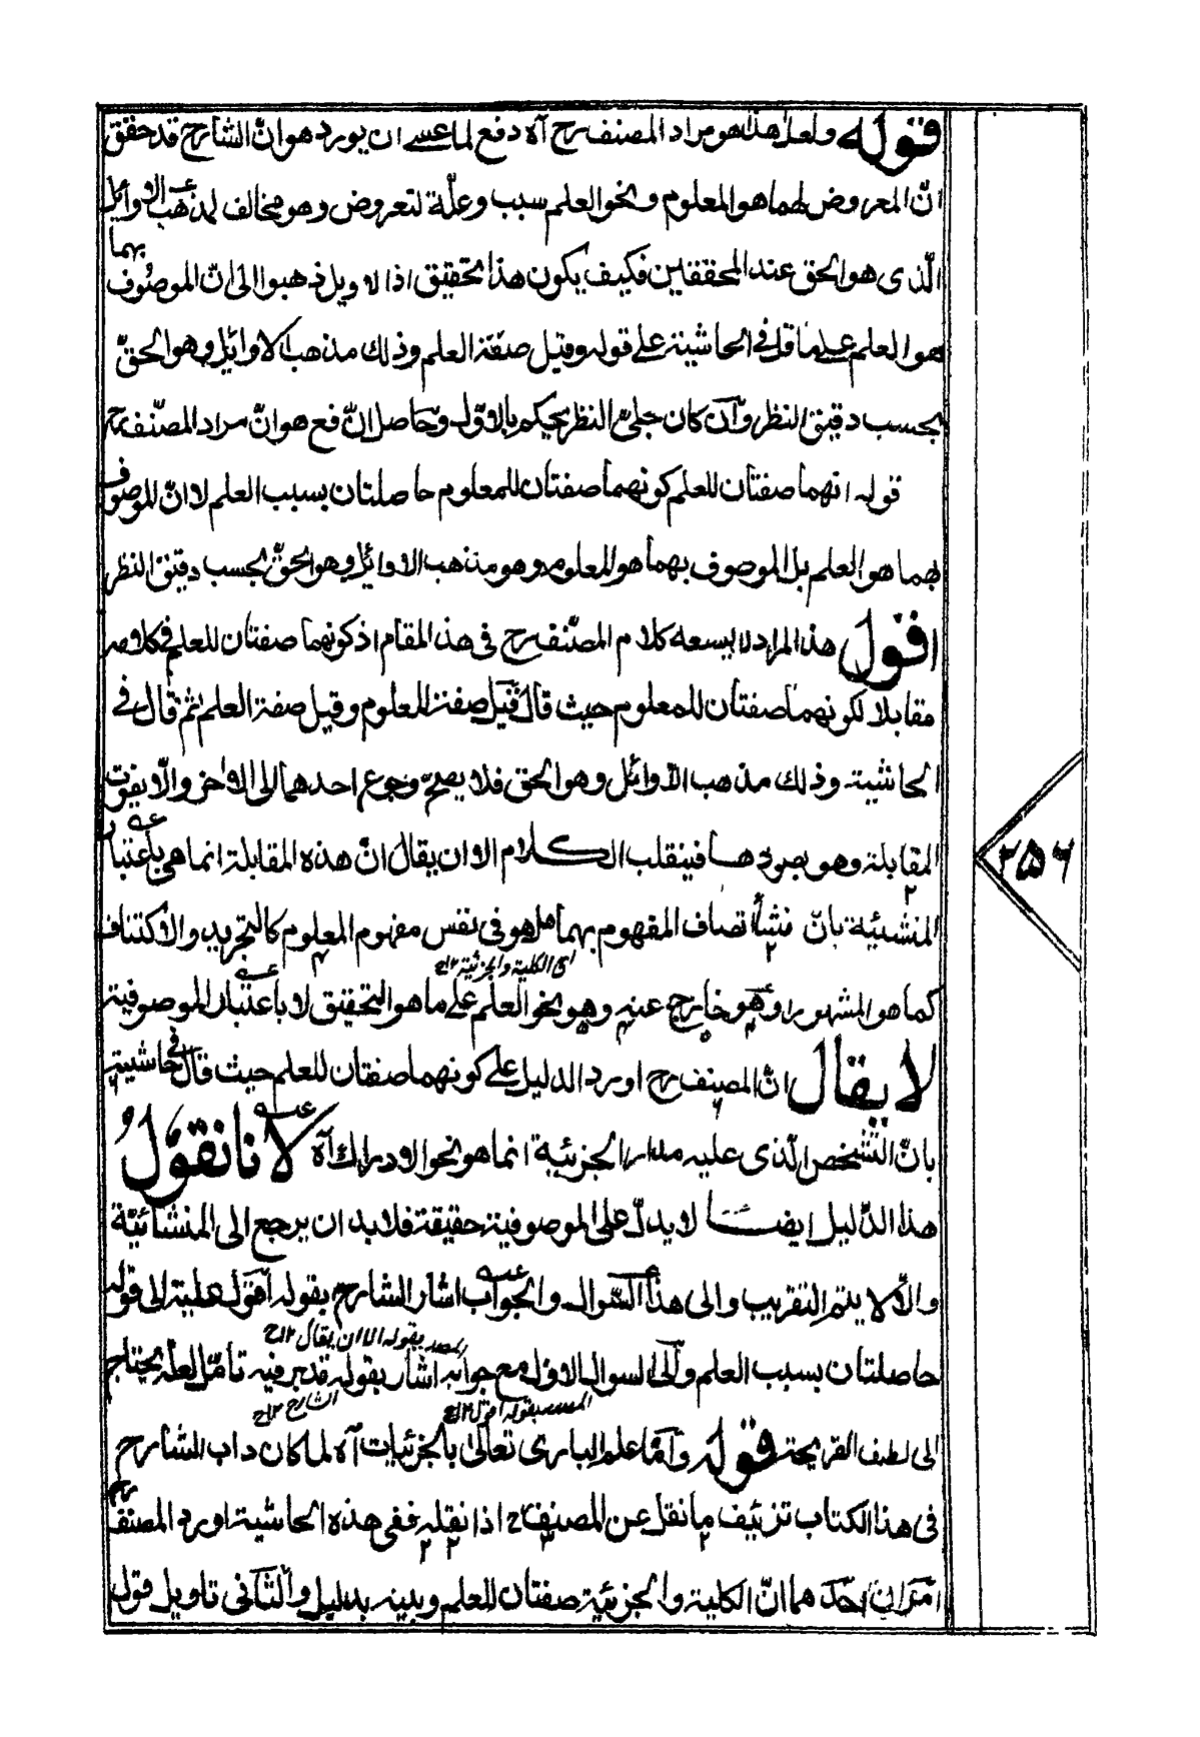 قوله ولعل هذا هو مراد المصنف رح آه دفع لما عسى ان يورد هو انّ الشارح قد حقق
انّ المعروض لهما هو المعلوم ونحو العلم سبب وعلّة لتعروض وهو مخالف لمذهب الاوايل
الّذى هو الحق عند المحققين فكيف يكون هذا تحقيق اذ الاوايل ذهبوا الى انّ الموصوف بهما
هو العلم على ما قال فى الحاشية على قوله وقيل صفة العلم وذلك مذهب الاوائل وهو الحقّ
بحسب دقيق النظر وآن كان جلىّ النظر يحكم بالاوّل وحاصل الدّفع هو انّ مراد المصنّف رح
قوله انهما صفتان للعلم كونهما صفتان للمعلوم حاصلتان بسبب العلم لا انّ الموصوف
بهما هو العلم بل الموصوف بهما هو المعلوم وهو مذهب الاوائل وهو الحقّ بحسب دقيق النظر
اقول هذا المراد لا يسعه كلام المصنّف رح فى هذا المقام اذ كونهما صفتان للعلم فى كلامه
مقابلا لكونهما صفتان للمعلوم حيث قال قيل صفة المعلوم وقيل صفة العلم ثم قال فى
الحاشية وذلك مذهب الأوائل وهو الحق فلا يصحّ رجوع احدهما الى الاخر والّا يفوت
المقابلة وهو بصددها فينقلب الكلام الا ان يقال انّ هذه المقابلة انما هى باعتبار
المنشئية بانّ منشأ اتصاف المفهوم بهما هل هو فى نفس مفهوم المعلوم كالتجريد والاكتناف
اى الكلية والجزئية ١٢ح
كما هو المشهور او هو خارج عنه وهو نحو العلم على ما هو التحقيق لا باعتبار الموصوفية
لا يقال انّ المصنف رح اورد الدليل على كونهما صفتان للعلم حيث قال فى حاشيته
بانّ التشخص الّذى عليه مدار الجزئية انما هو نحو الادراك آه لانا نقول
هذا الدّليل ايضا لا يدلّ على الموصوفية حقيقة فلا بد ان يرجع الى المنشائيّة
والّا لا يتم التقريب والى هذا السّوال والجواب اشار الشارح بقوله اقول علية الى قوله
بقوله الا ان يقال ١٢ح
حاصلتان بسبب العلم وآلى السوال الاوّل مع جوابه اشار بقوله فتدبر فيه تامّل لعلّه يحتاج
بقوله اقول ١٢ح
الشارح ١٢ح
الى لطيف القريحة قوله وآمّا علم البارى تعالى بالجزئيات آه لما كان داب الشارح
فى هذا الكتاب تزئيف ما نقل عن المصنف رح اذا نقله ففى هذه الحاشية اورد المصنف
امران احدهما انّ الكلية والجزئية صفتان للعلم وبينه بدليل والثانى تاويل قول
٢٥٦